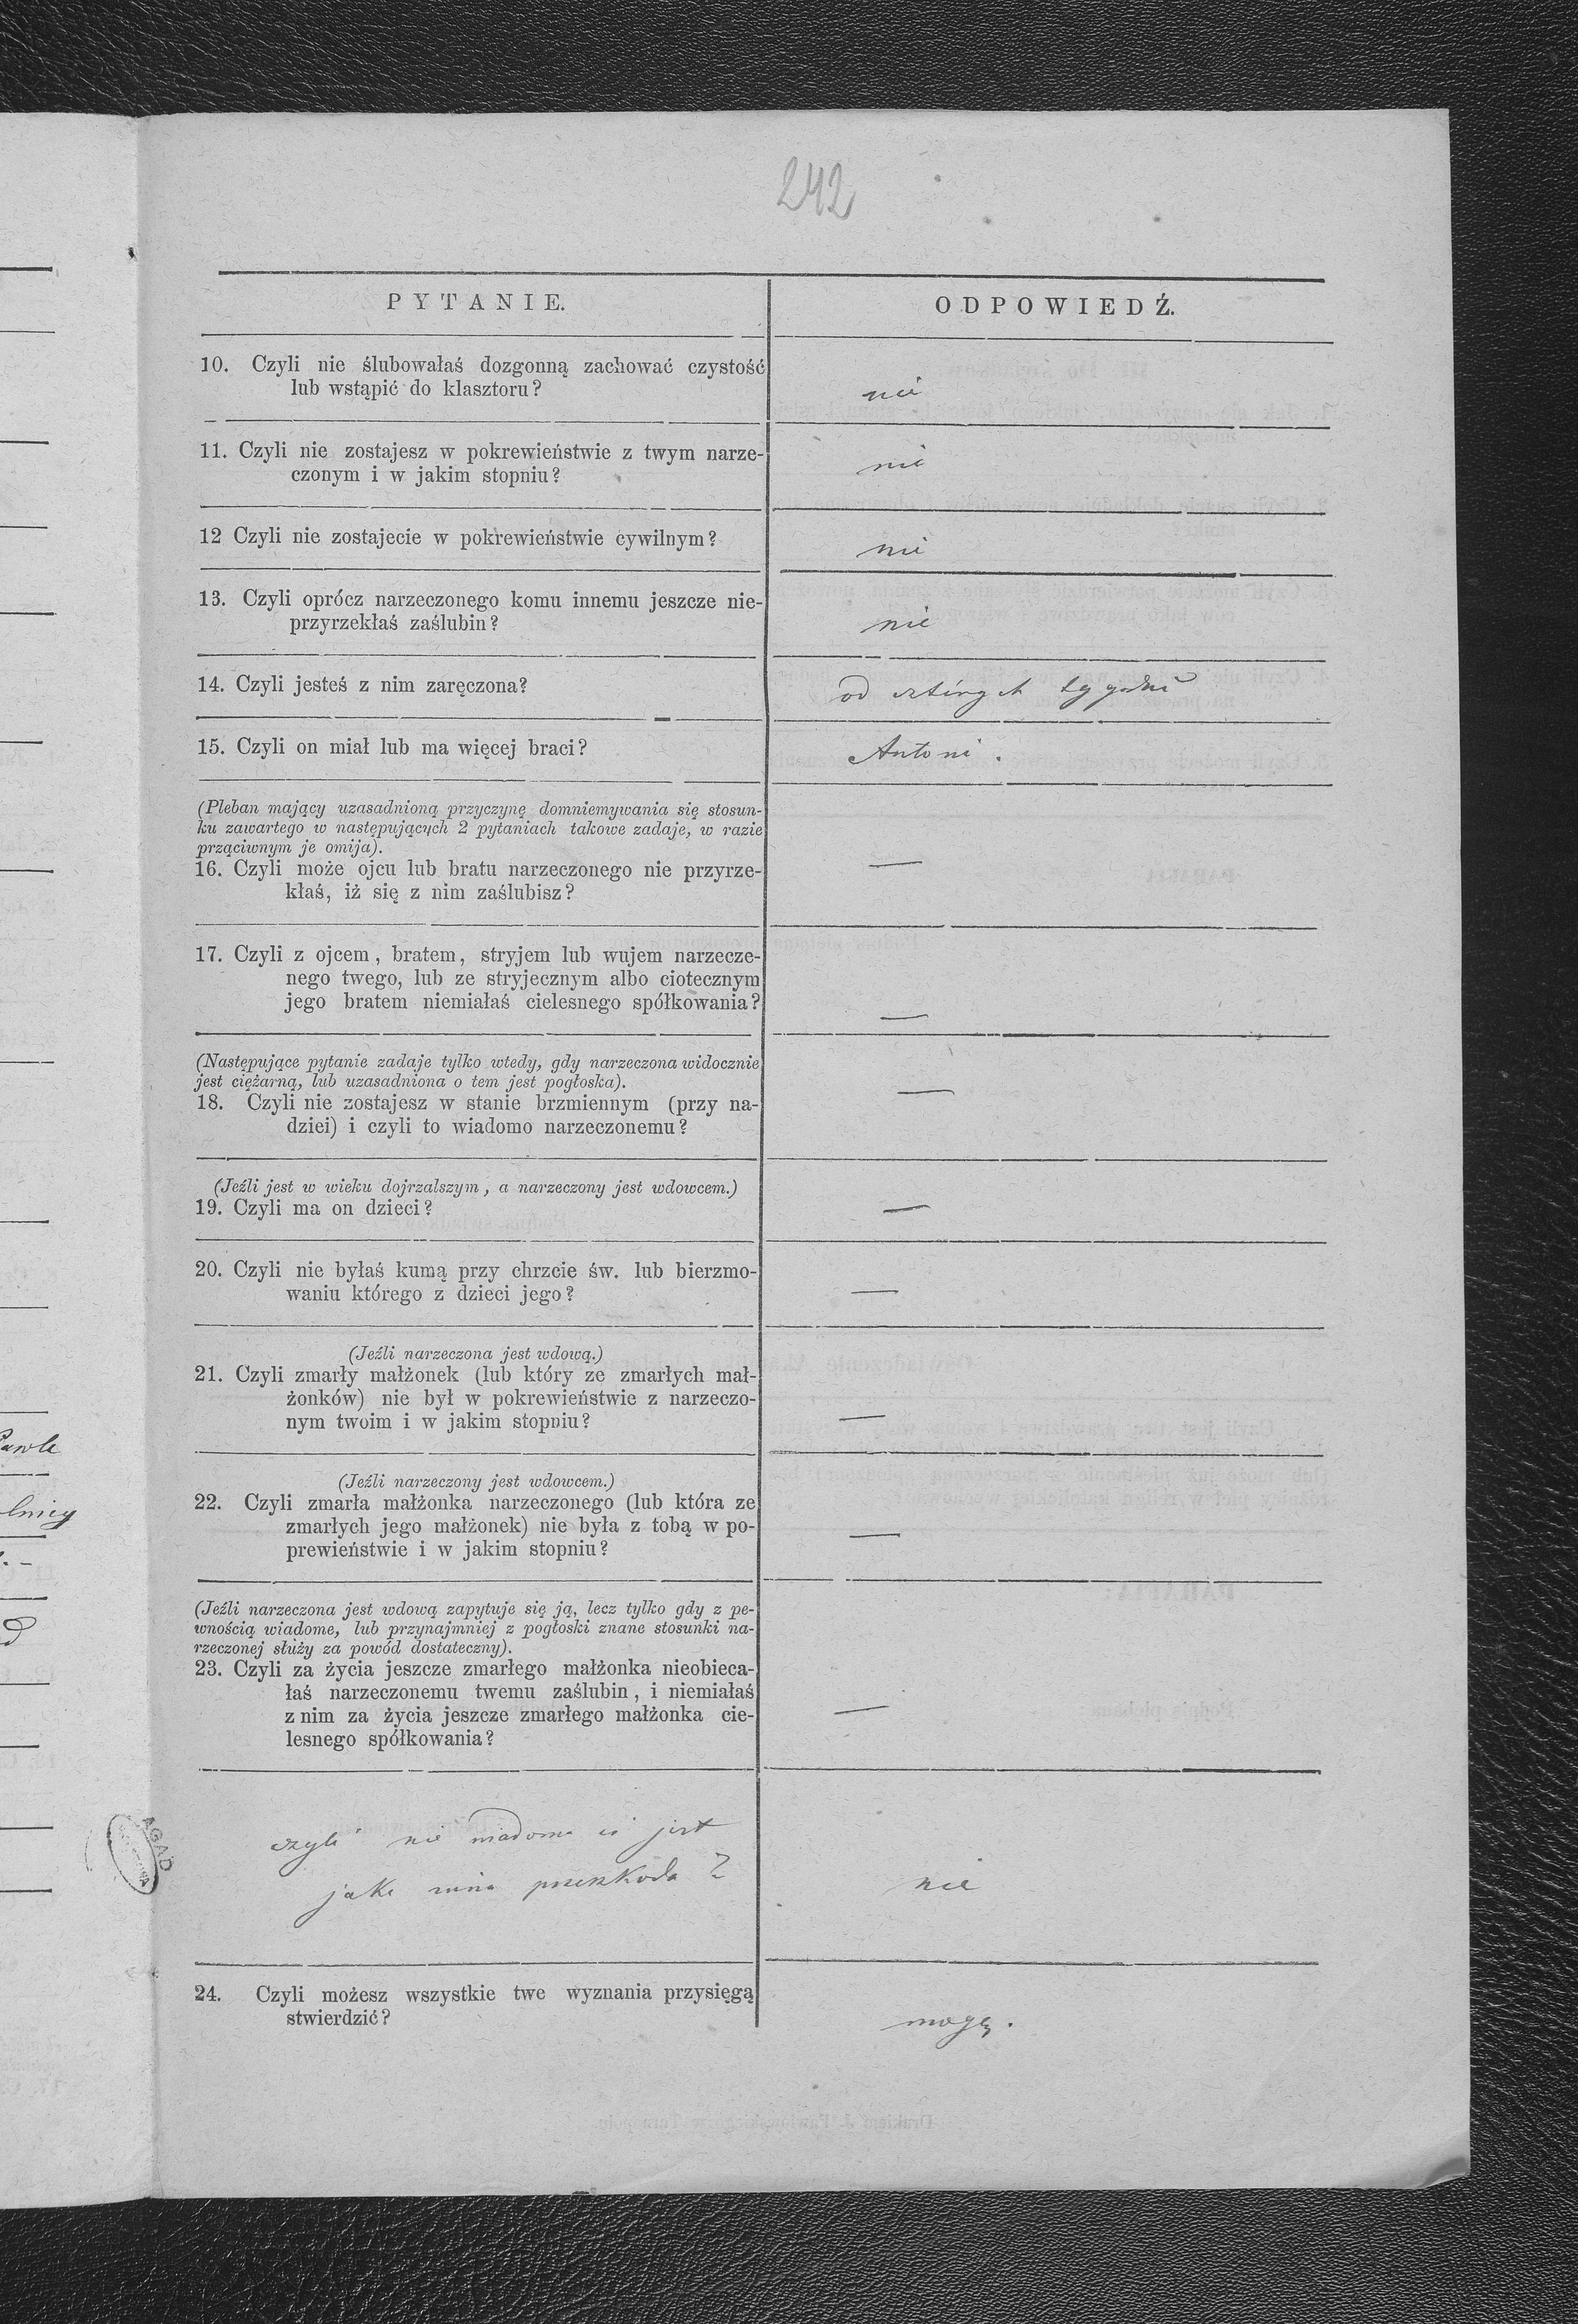 242
PYTANIE.
ODPOWIEDŹ.
10. Czyli nie ślubowałaś dozgonną zachować czystość
lub wstąpić do klasztoru?
nie
11. Czyli nie zostajesz w pokrewieństwie z twym narze-
czonym i w jakim stopniu?
nie
12 Czyli nie zostajecie w pokrewieństwie cywilnym?
nie
13. Czyli oprócz narzeczonego komu innemu jeszcze nie-
przyrzekłaś zaślubin?
nie
14. Czyli jesteś z nim zaręczona?
od cztérych tygodni
15. Czyli on miał lub ma więcej braci?
Antoni.
(Pleban mający uzasadnioną przyczynę domniemywania się stosun-
ku zawartego w następujących 2 pytaniach takowe zadaje, w razie
prząciwnym je omija).
16. Czyli może ojcu lub bratu narzeczonego nie przyrze-
kłaś, iż się z nim zaślubisz?
—
17. Czyli z ojcem, bratem, stryjem lub wujem narzecze-
nego twego, lub ze stryjecznym albo ciotecznym
jego bratem niemiałaś cielesnego spółkowania?
—
(Następujące pytanie zadaje tylko wtedy, gdy narzeczona widocznie
jest ciężarną, lub uzasadniona o tem jest pogłoska).
18. Czyli nie zostajesz w stanie brzmiennym (przy na-
dziei) i czyli to wiadomo narzeczonemu?
—
(Jeźli jest w wieku dojrzalszym, a narzeczony jest wdowcem.)
19. Czyli ma on dzieci?
—
20. Czyli nie byłaś kumą przy chrzcie św. lub bierzmo-
waniu którego z dzieci jego?
—
(Jeźli narzeczona jest wdową.)
21. Czyli zmarły małżonek (lub który ze zmarłych mał-
żonków) nie był w pokrewieństwie z narzeczo-
nym twoim i w jakim stopniu?
—
(Jeźli narzeczony jest wdowcem.)
22. Czyli zmarła małżonka narzeczonego (lub która ze
zmarłych jego małżonek) nie była z tobą w po-
prewieństwie i w jakim stopniu?
—
(Jeźli narzeczona jest wdową zapytuje się ją, lecz tylko gdy z pe-
wnością wiadome, lub przynajmniej z pogłoski znane stosunki na-
rzeczonej służy za powód dostateczny).
23. Czyli za życia jeszcze zmarłego małżonka nieobieca-
łaś narzeczonemu twemu zaślubin, i niemiałaś
z nim za życia jeszcze zmarłego małżonka cie-
lesnego spółkowania?
—
czyli nie wiadoma ci jest
jaka inna przeszkoda?
nie
24. Czyli możesz wszystkie twe wyznania przysięgą
stwierdzić?
mogę.
AGAD